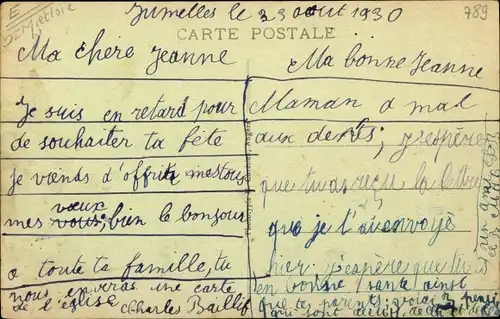 Jumelles le 23 août 1930
789
E
CARTE POSTALE
Ma chère Jeanne
Je suis en retard pour
de souhaiter ta fête
je viends d'offrir mestous
mes voeux bien le bonjour
a toute ta famille, tu
nous enveras une carte
de l'église Charles Baillif
Ma bonne Jeanne
Maman a mal
aux dents; j'espère
que tu as reçu la lettre
que je t'ai envoyé
hier. j'espère que tu es
en bonne santé ainsi
que te parents; voici
qui sont de